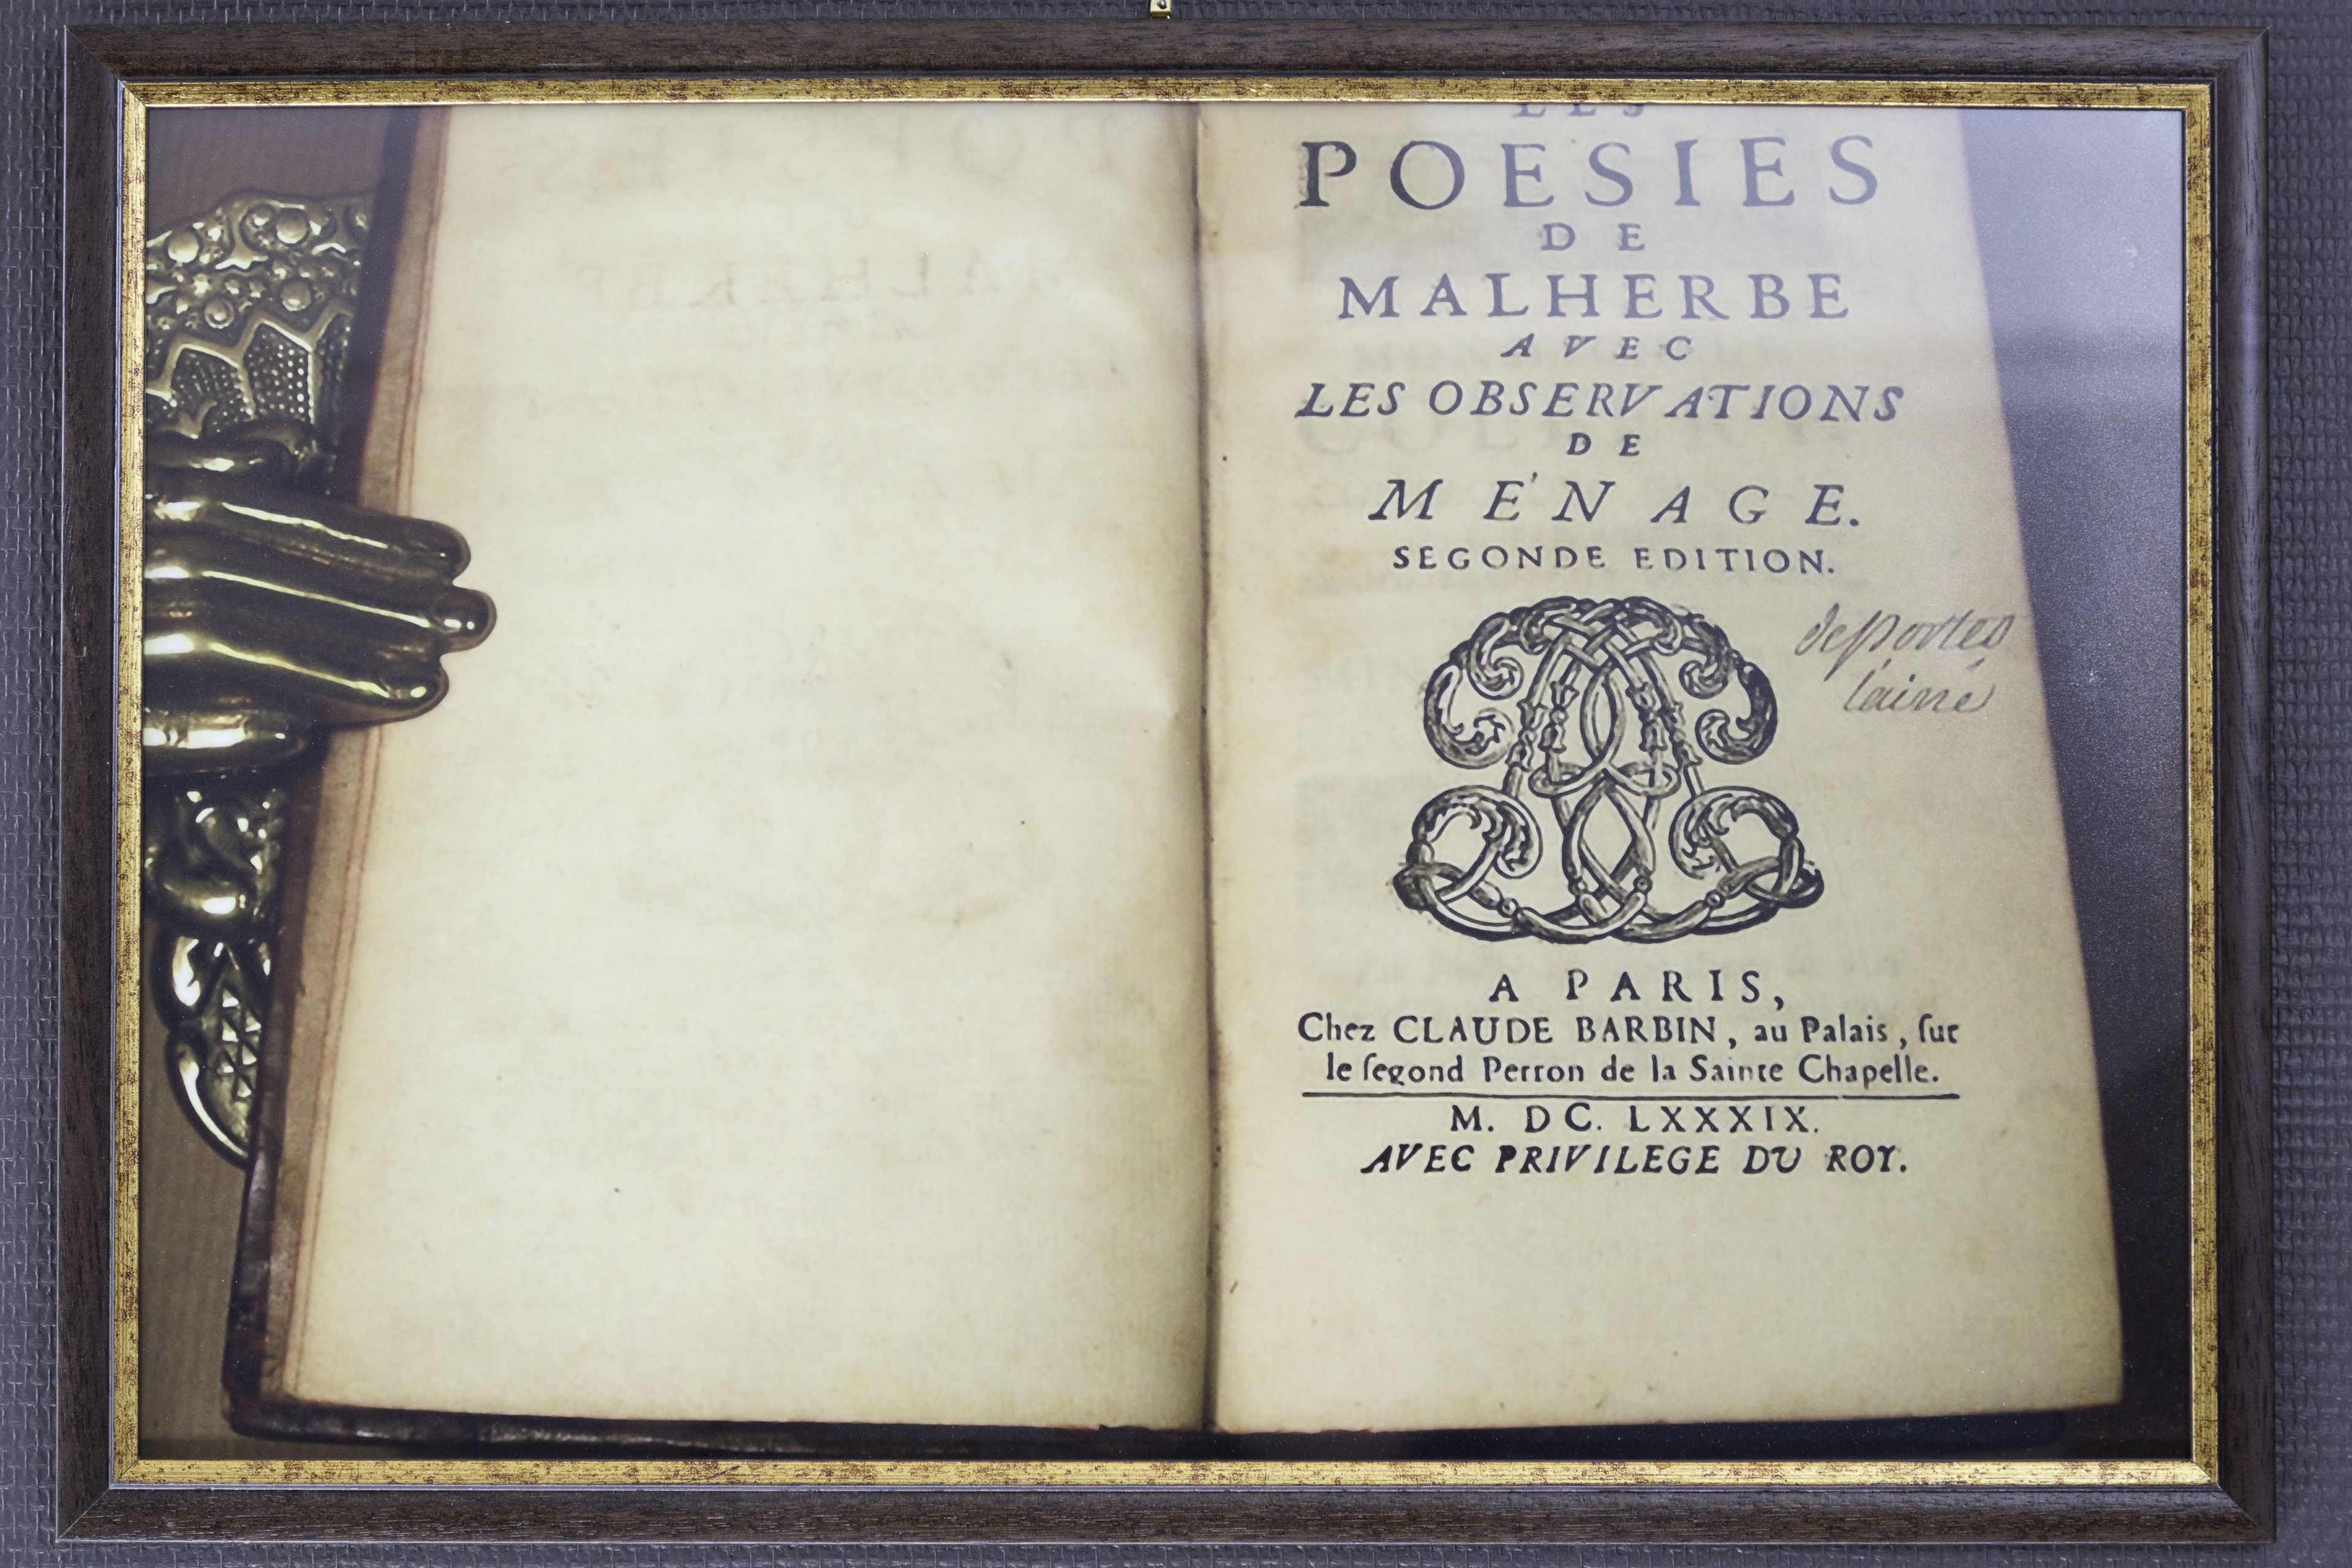 LES
POESIES
DE
MALHERBE
AVEC
LES OBSERVATIONS
DE
MÉNAGE.
SEGONDE EDITION.
desportes
l'ainé
A PARIS,
Chez CLAUDE BARBIN, au Palais, ſur
le ſegond Perron de la Sainte Chapelle.
M. DC. LXXXIX.
AVEC PRIVILEGE DU ROY.